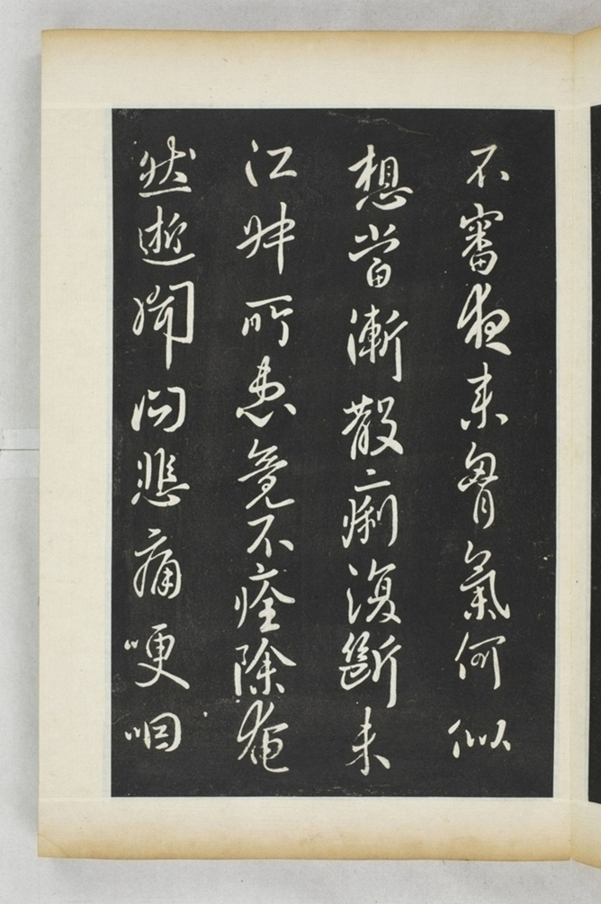 不審夜来胷氣何似
想當漸散〻痢復斷未
江舛所患竟不痊除奄
然逝聞問悲痛哽咽